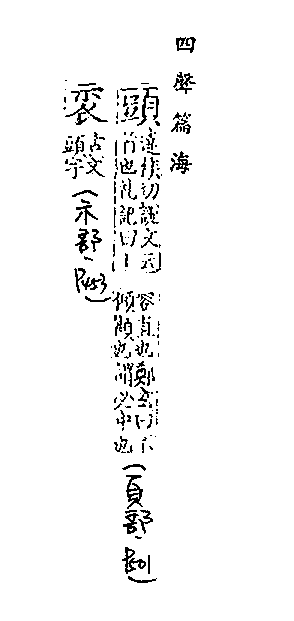 四聲篇海
頭 達侯切說文云首也礼記曰丨容直也鄭玄曰不傾顧也謂必中也(頁部,P501)
𥘖 古文頭字(示部,P453)